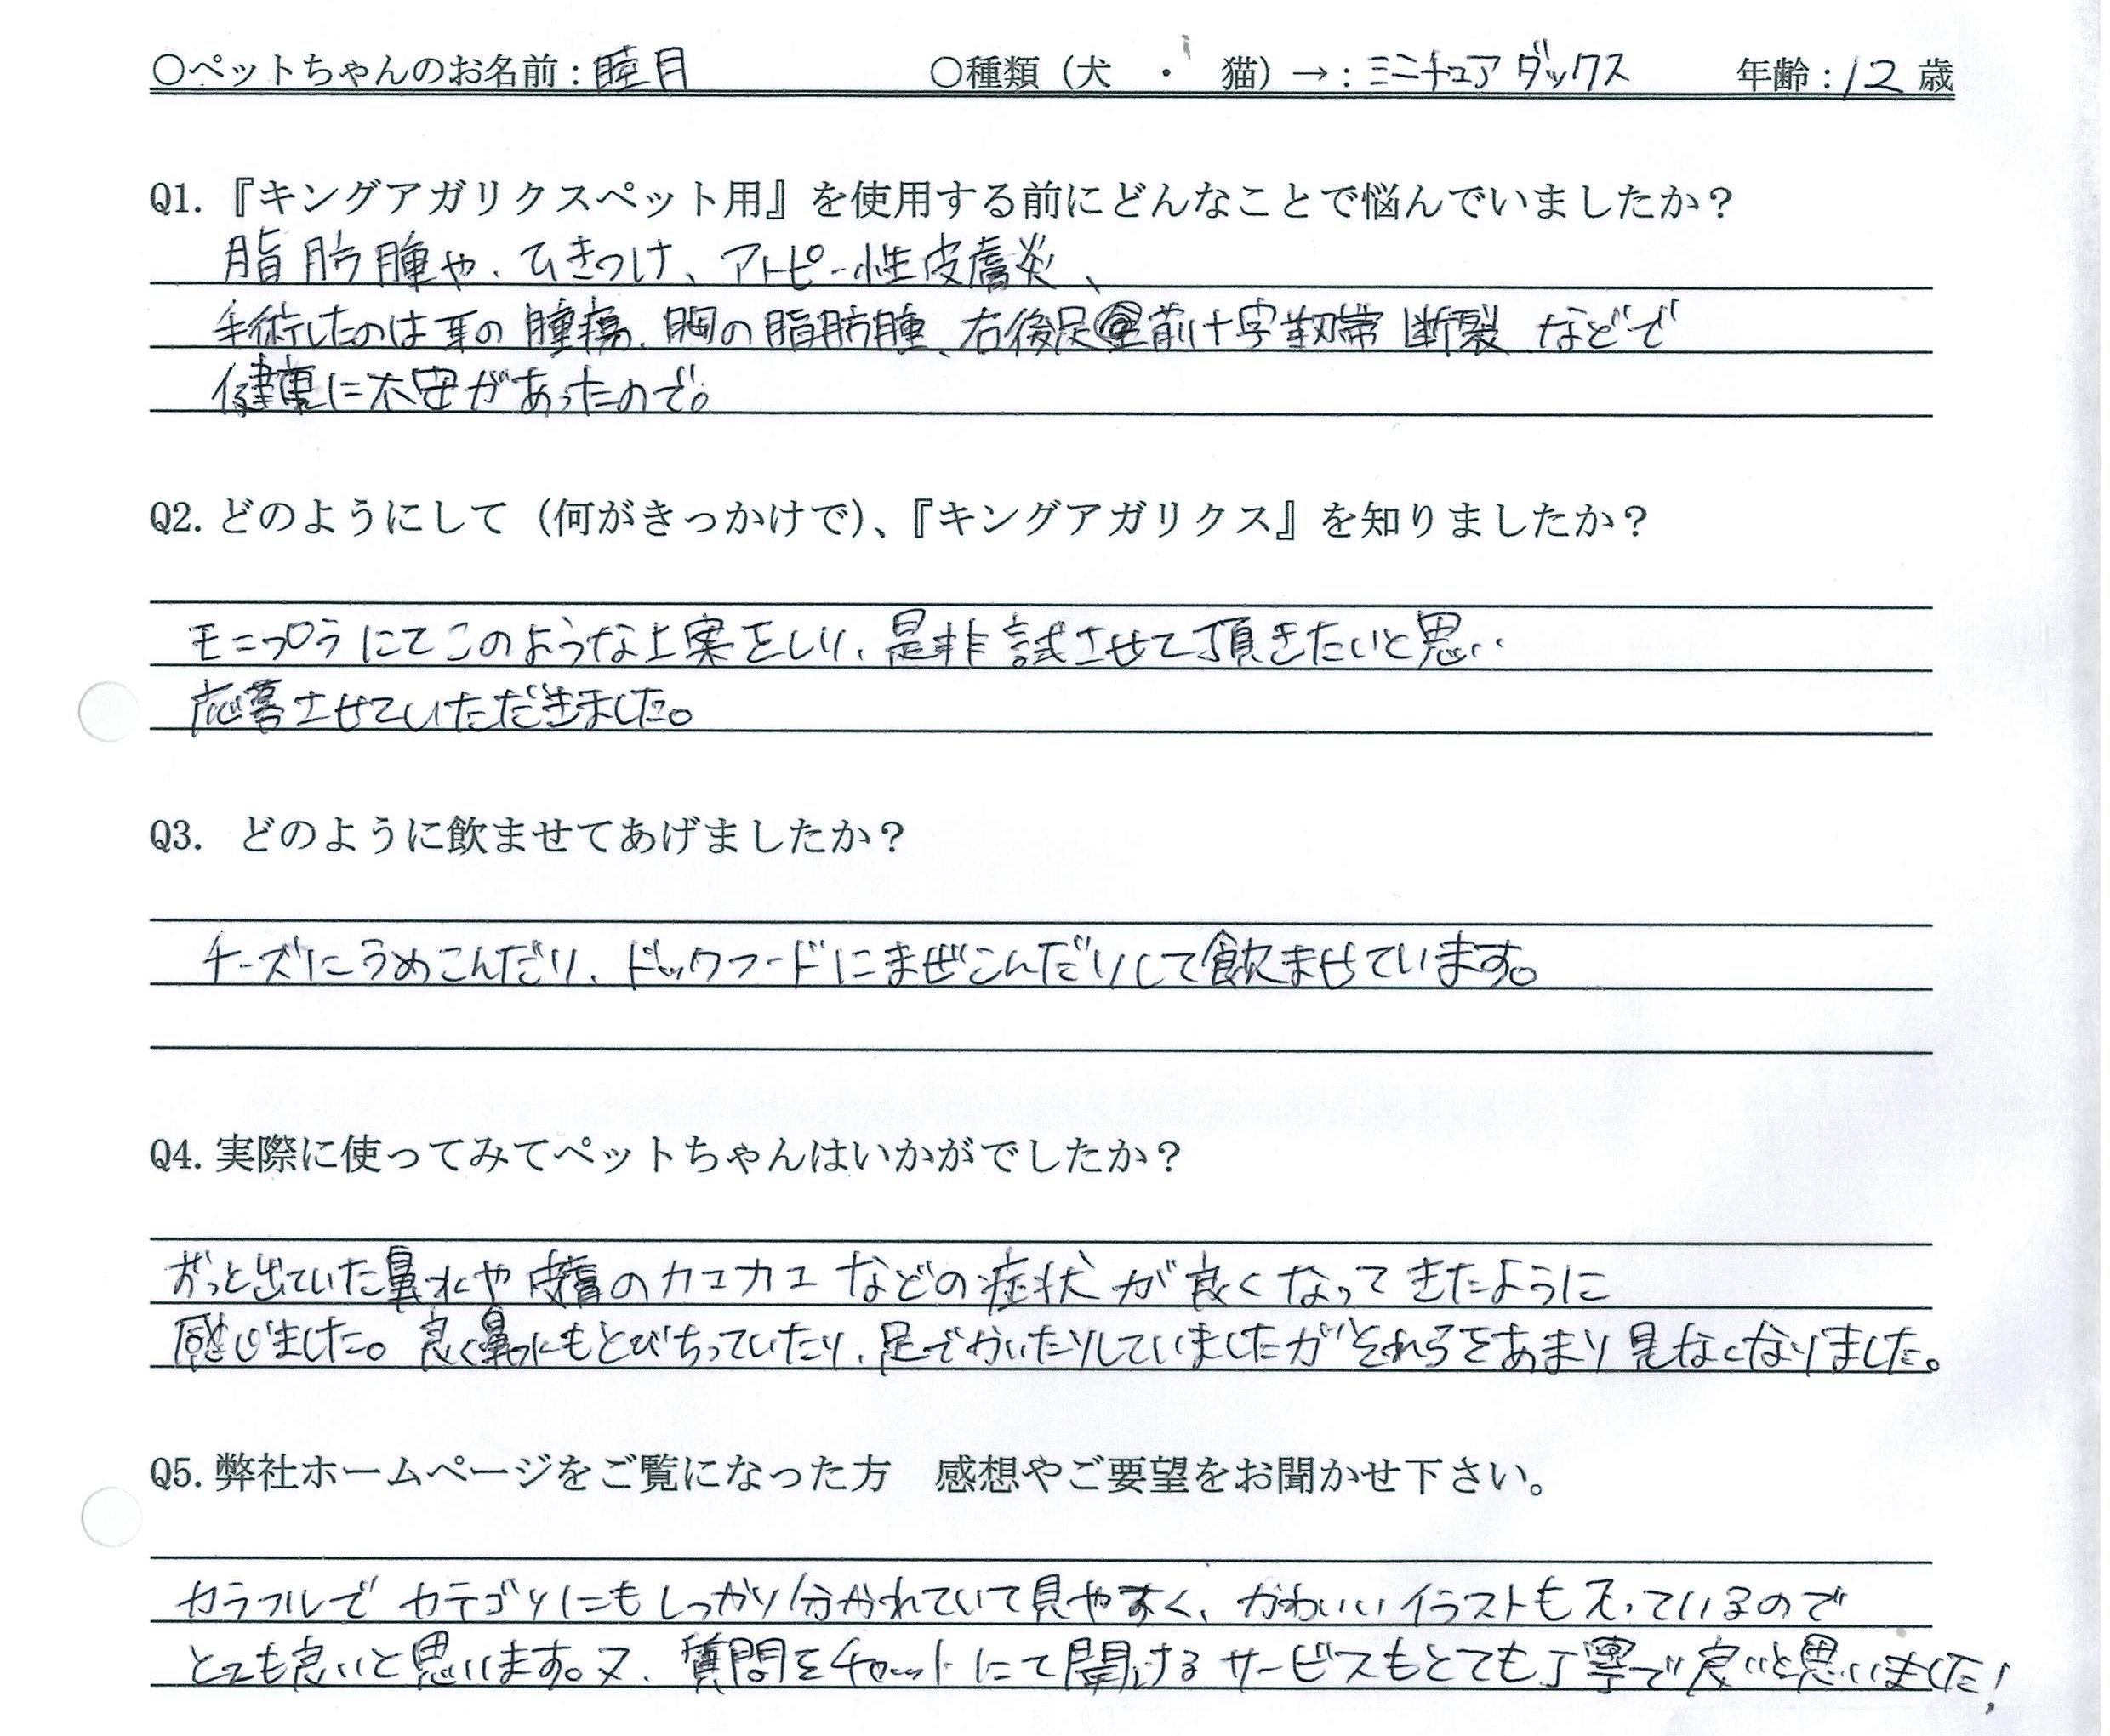 ○ペットちゃんのお名前：睦月　○種類（犬　・　猫）→：ミニチュアダックス　年齢：12歳
Q1.『キングアガリクスペット用』を使用する前にどんなことで悩んでいましたか？
脂肪腫や、ひきつけ、アトピー性皮膚炎、
手術したのは耳の腫瘍、胸の脂肪腫、右後足前十字靭帯断裂などで
健康に不安があったので。
Q2.どのようにして（何がきっかけで）、『キングアガリクス』を知りましたか？
モニプラにてこのような上案をしり、是非試させて頂きたいと思い
応募させていただきました。
Q3. どのように飲ませてあげましたか？
チーズにうめこんだり、ドックフードにまぜこんだりして飲ませています。
Q4.実際に使ってみてペットちゃんはいかがでしたか？
ずっと出ていた鼻水や皮膚のカユカユなどの症状が良くなってきたように
感じました。良く鼻水もとびちっていたり、足でかいたりしていましたがそれらをあまり見なくなりました。
Q5.弊社ホームページをご覧になった方　感想やご要望をお聞かせ下さい。
カラフルでカテゴリにもしっかり分かれていて見やすく、かわいいイラストも入っているので
とても良いと思います。又、質問をチャットにて聞けるサービスもとても丁寧で良いと思いました！